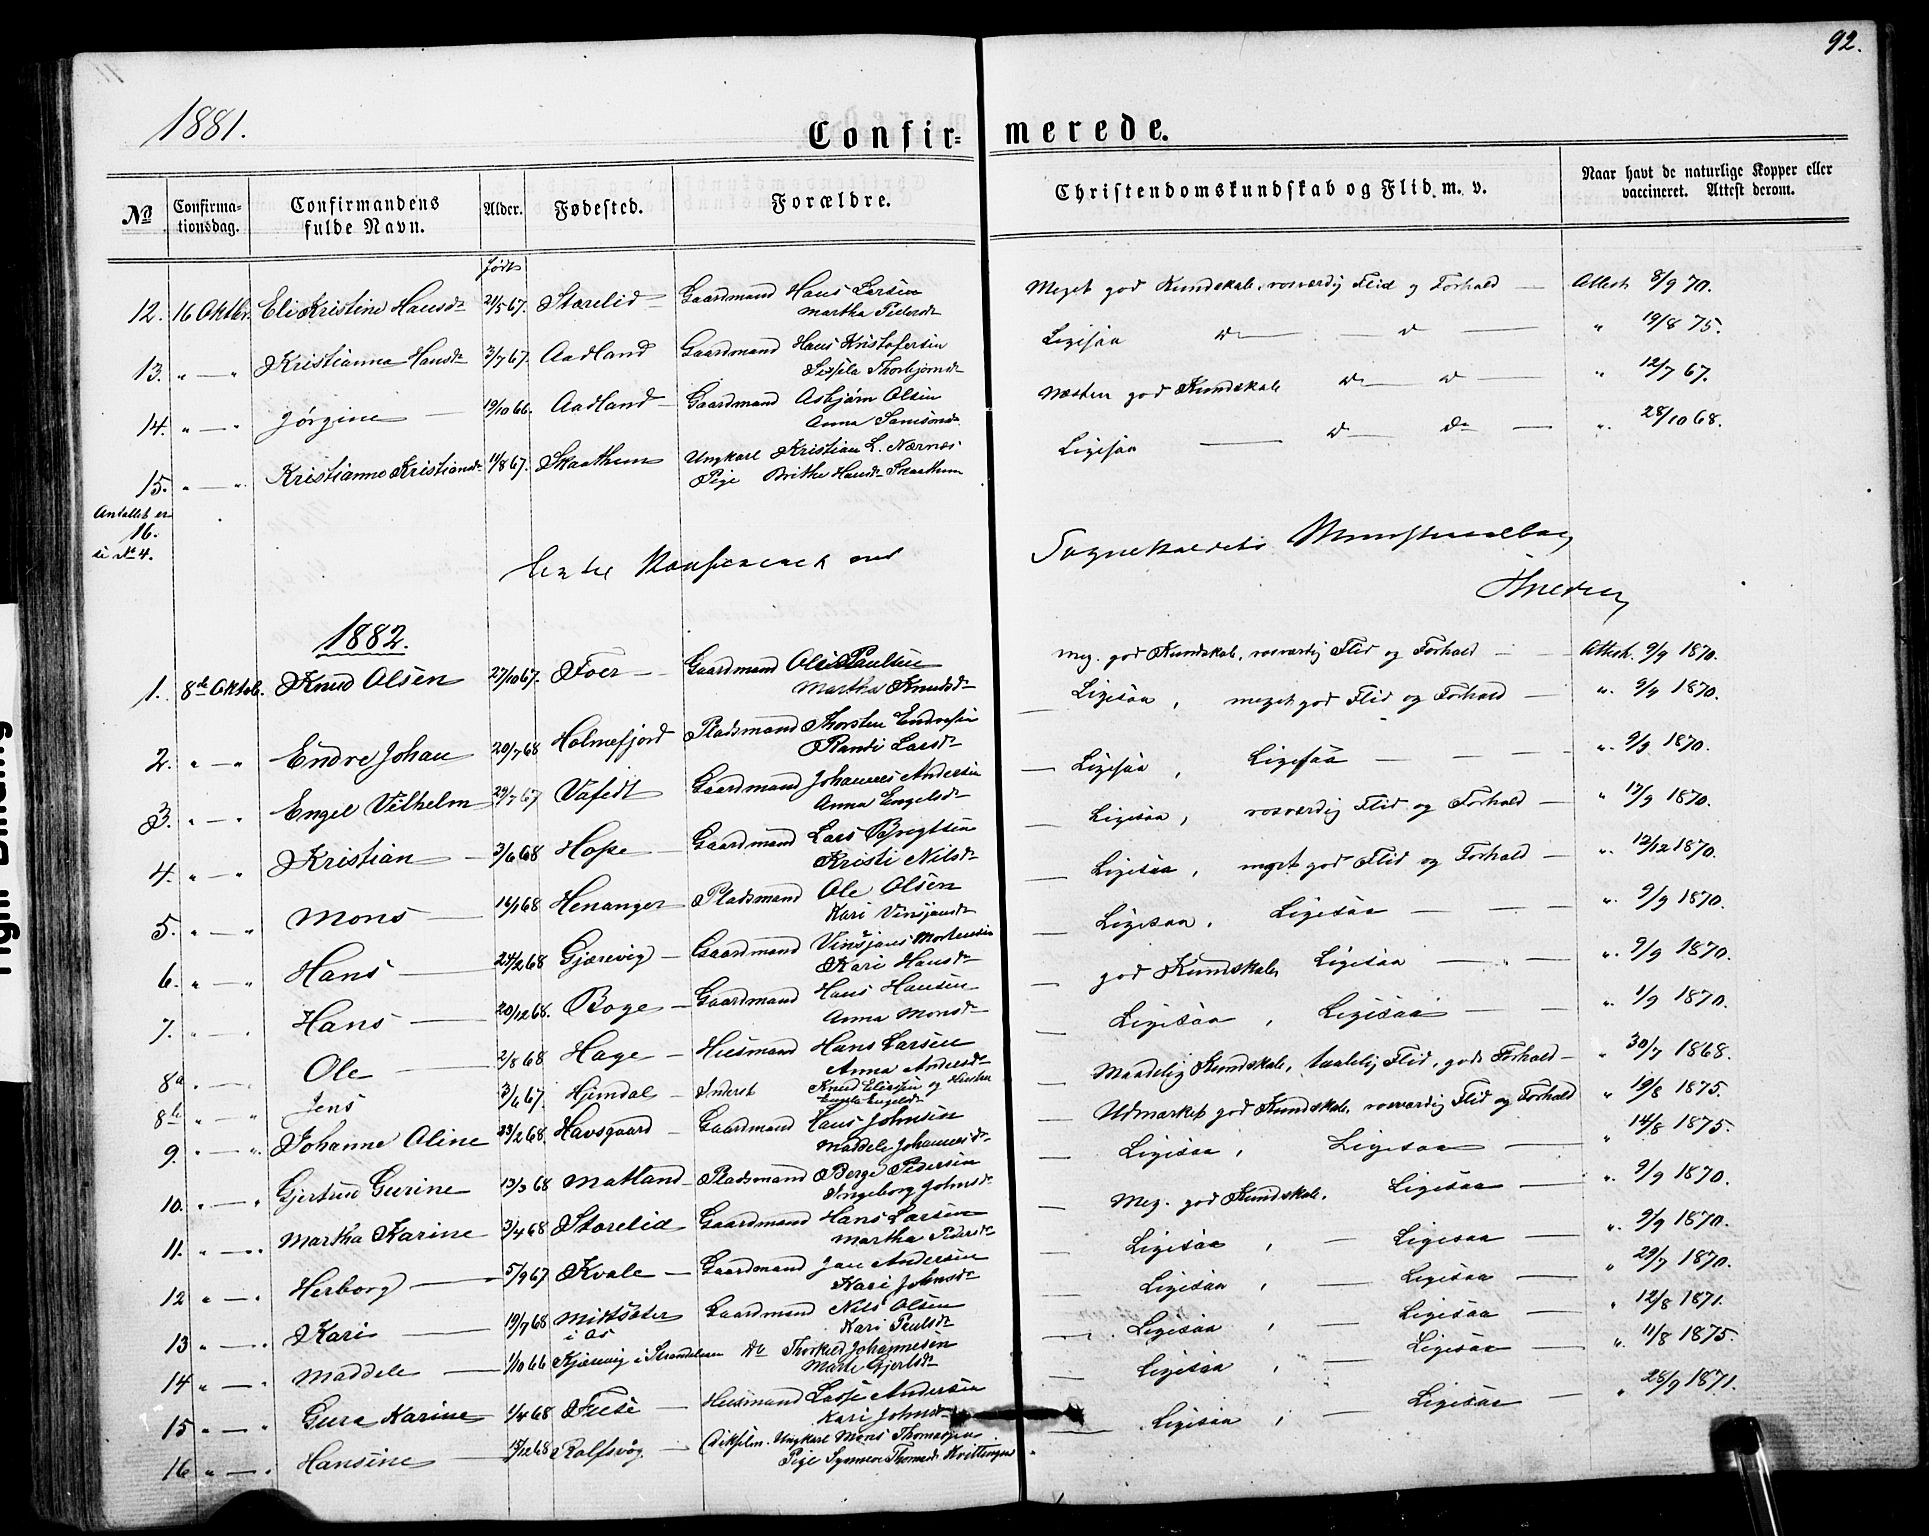 92.
1881.
Confir= merede.
No
Confirma-
tionsdag.
Confirmandens
fulde Navn.
Alder.
Fødested.
Forældre.
Christendomskundskab og Flid m. v.
Naar havt de naturlige Kopper eller
vaccineret. Attest derom.
født
12. 16 Oktbr. Eli Kristine Hansdr 21/5 67. Storelid Gaardmand Hans Larsen Meget god Kundskab, rosværdig Flid og Forhold — Attest 8/9 70.
Martha Pedersdr
13. " — " Kristianna Hansdr 3/7 67. Aadland Gaardmand Hans Kristofersen Ligesaa do — do — " 19/8 75.
Sissela Thorbjørnsdr
14. " — " Jørgine — 19/10 66. Aadland Gaardmand Asbjørn Olsen Næsten god Kundskab do — do — " 12/7 67.
Anna Samsonsdr
15. " — " Kristianne Kristiansdr 11/8 67. Skaathun Ungkarl Kristian L. Nærnes Ligesaa — do do — " 28/10 68.
Pige Brithe Hansdr Skaathun
Antallet er
16.
se No 4.
Sognekaldets
1882.
1. 8de Oktob. Knud Olsen 27/10 67. Foer — Gaardmand Ole Paulsen Meg. god Kundskab, rosværdig Flid og Forhold — Attest. 9/9 1870.
Martha Knudsdr
2. " — " Endre Johan 20/7 68 Holmefjord Pladsmand Thorsten Endresen — Ligesaa, meget god Flid og Forhold — " 9/9 1870.
Randi Larsdr
3. " — " Engel Vilhelm 29/7 67 Vafedt Gaardmand Johannes Andersen — Ligesaa, Ligesaa — — " 9/9 1870.
Anna Engelsdr
4. " — " Kristian — 3/6 68 Hope — Gaardmand Lars Brigtsen — Ligesaa, rosværdig Flid og Forhold — " 17/9 1870.
Kristi Nilsdr
5. " — " Mons — 16/1 68 Henanger Pladsmand Ole Olsen — Ligesaa, meget god Flid og Forhold — " 12/12 1870.
Kari Vinsjansdr
6. " — " Hans — 24/2 68 Gjærevig — Gaardmand Vinsjans Mortensen — Ligesaa, Ligesaa — — " 9/9 1870.
Kari Hansdr
7. " — " Hans — 20/12 68. Boge — Gaardmand Hans Hansen — god Kundskab, Ligesaa — " — " 9/9 1870.
Anna Monsdr
8a " — " Ole — 2/8 68 Hage — Husmand Hans Larsen — Ligesaa, Ligesaa — — " 1/9 1870.
Anna Andersdr
8b " — " Jens 3/6 67. Hjemdal — Inderst Knud Eliassen og Hustru — Maadelig Kundskab, taalelig Flid, godt Forhold — " 30/7 1868.
Engele Engelsdr
9. " — " Johanne Oline 23/2 68. Havsgaard — Gaardmand Hans Johnsen — Udmærket god Kundskab, rosværdig Flid og Forhold " 19/8 1875.
Maddele Johannesdr
10. " — " Gjertrud Gurine 13/3 68 Matland — Pladsmand Berge Pedersen — Ligesaa, Ligesaa — " 14/8 1875.
Ingeborg Johnsdr
11. " — " Martha Karine 3/4 68 Storelid Gaardmand Hans Larsen — Meg. god Kundskab, Ligesaa — " 9/9 1870.
Martha Pedersdr
12 " — " Herborg — 5/9 67 Kvale — Gaardmand Jan Andersen — Ligesaa, — Ligesaa — " 9/9 1870.
Kari Johnsdr
13 " — " Kari — 19/7 68 Midtsæter Gaardmand Nils Olsen — Ligesaa, — Ligesaa — " 29/7 1870.
i Os Kari Paulsdr
14 " — " Maddele — 1/10 66 Gjærevig i Strandebarm do Thorkild Johannesen — Ligesaa, — Ligesaa — " 12/8 1871.
Marte Gjertsdr
15 " — " Gura Karine 1/4 68 Fuse — Husmand Lasse Andersen — Ligesaa, — Ligesaa — " 11/8 1875.
Kari Johnsdr
16 " — " Hansine — 17/12 68 Rolfsvog — Ungkarl Mons Thomassen — Ligesaa, — Ligesaa — " 28/9 1871.
Pige Synneve Thomasdr Kvittingen